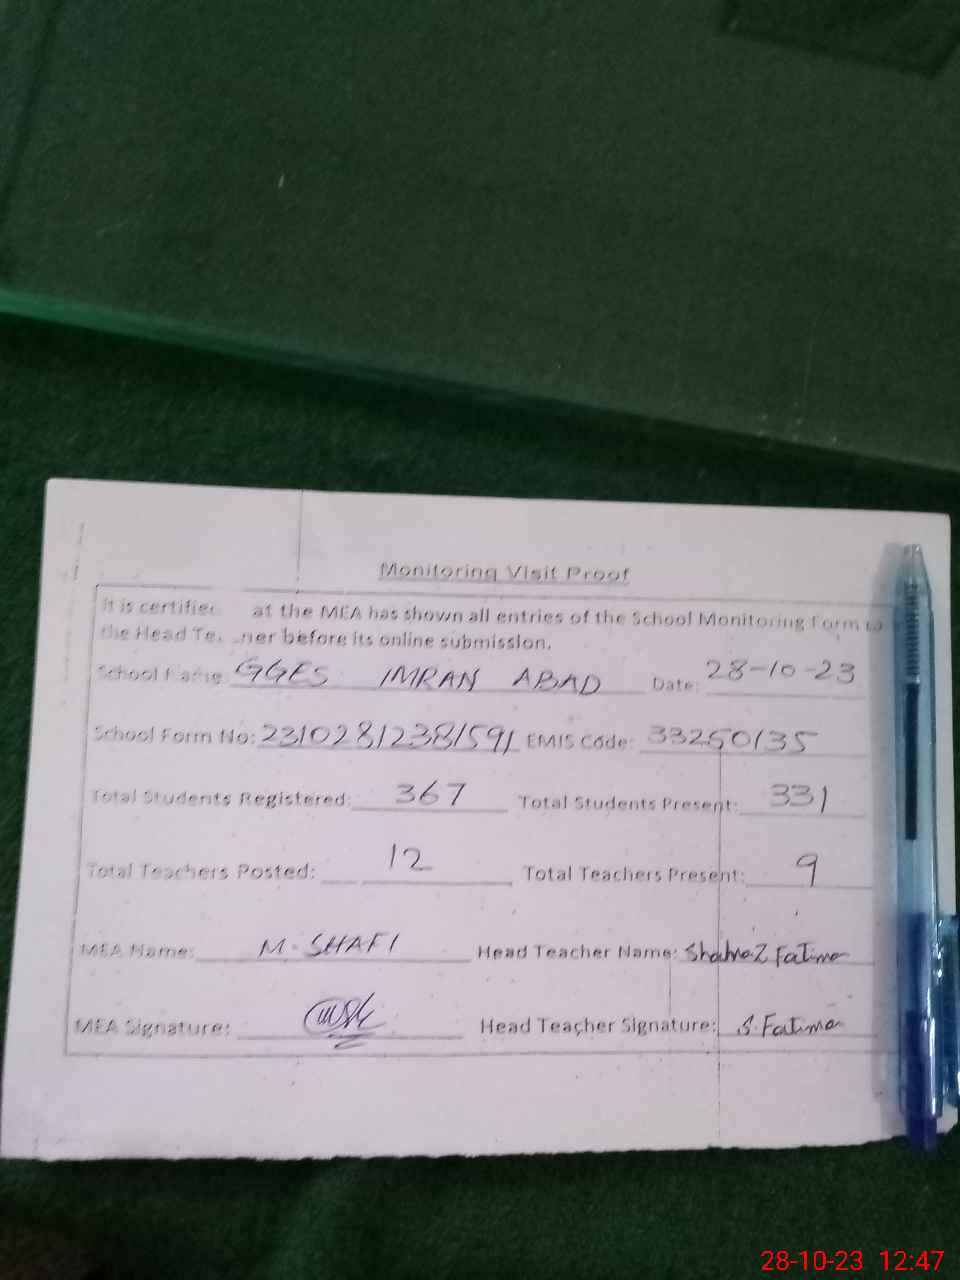 Monitoring Visit Proof
It is certified at the MEA has shown all entries of the School Monitoring Form to
the Head Te ner before its online submission.
School Name: GGES IMRAN ABAD Date: 28-10-23
School Form No: 23102812381591 EMIS Code: 33250135
Total Students Registered: 367 Total Students Present: 331
Total Teachers Posted: 12 Total Teachers Present: 9
MEA Name: M. SHAFI Head Teacher Name: Shahnaz Fatima
MEA Signature: Head Teacher Signature: S. Fatima
28-10-23 12:47